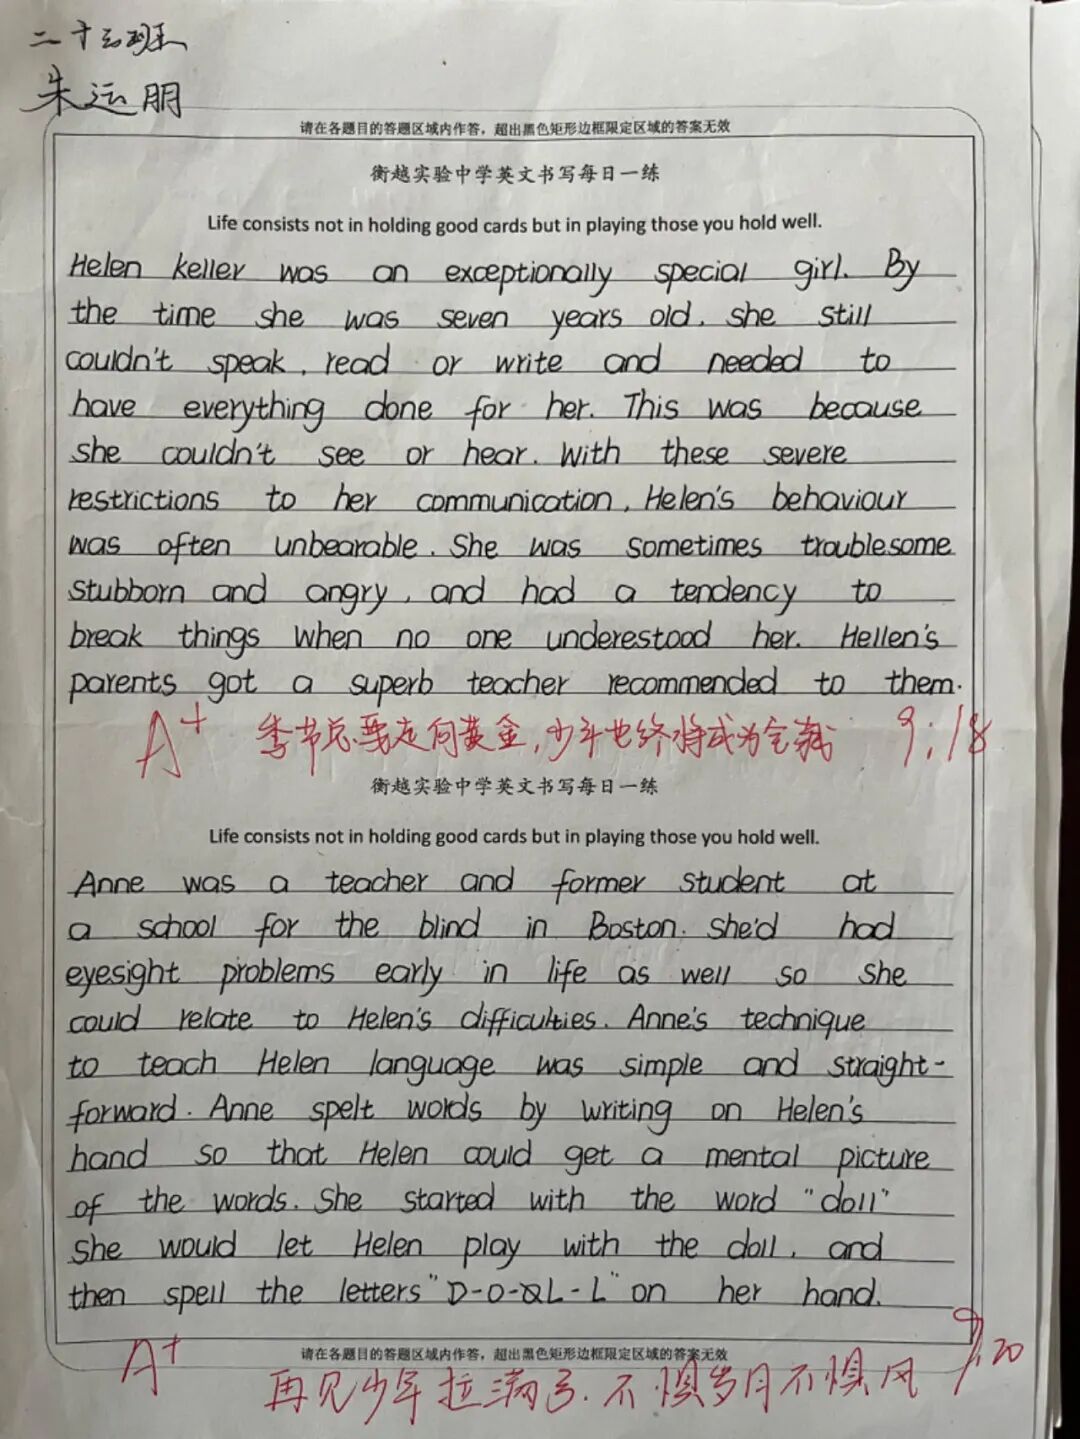 二十三班
朱运朋
请在各题目的答题区域内作答，超出黑色矩形边框限定区域的答案无效
衡越实验中学英文书写每日一练
Life consists not in holding good cards but in playing those you hold well.
Helen keller was an exceptionally special girl. By
the time she was seven years old, she still
couldn't speak, read or write and needed to
have everything done for her. This was because
she couldn't see or hear. With these severe
restrictions to her communication, Helen's behaviour
was often unbearable. She was sometimes troublesome
stubborn and angry, and had a tendency to
break things when no one underestood her. Hellen's
parents got a superb teacher recommended to them.
A+ 季节总要走向黄金,少年也终将成为 9.18
衡越实验中学英文书写每日一练
Life consists not in holding good cards but in playing those you hold well.
Anne was a teacher and former student at
a school for the blind in Boston. She'd had
eyesight problems early in life as well so she
could relate to Helen's difficulties. Anne's technique
to teach Helen language was simple and straight-
forward. Anne spelt words by writing on Helen's
hand so that Helen could get a mental picture
of the words. She started with the word "doll"
She would let Helen play with the doll, and
then spell the letters "D-O-L-L" on her hand.
请在各题目的答题区域内作答，超出黑色矩形边框限定区域的答案无效
A+ 再见少年拉满弓.不惧岁月不惧风 9.20